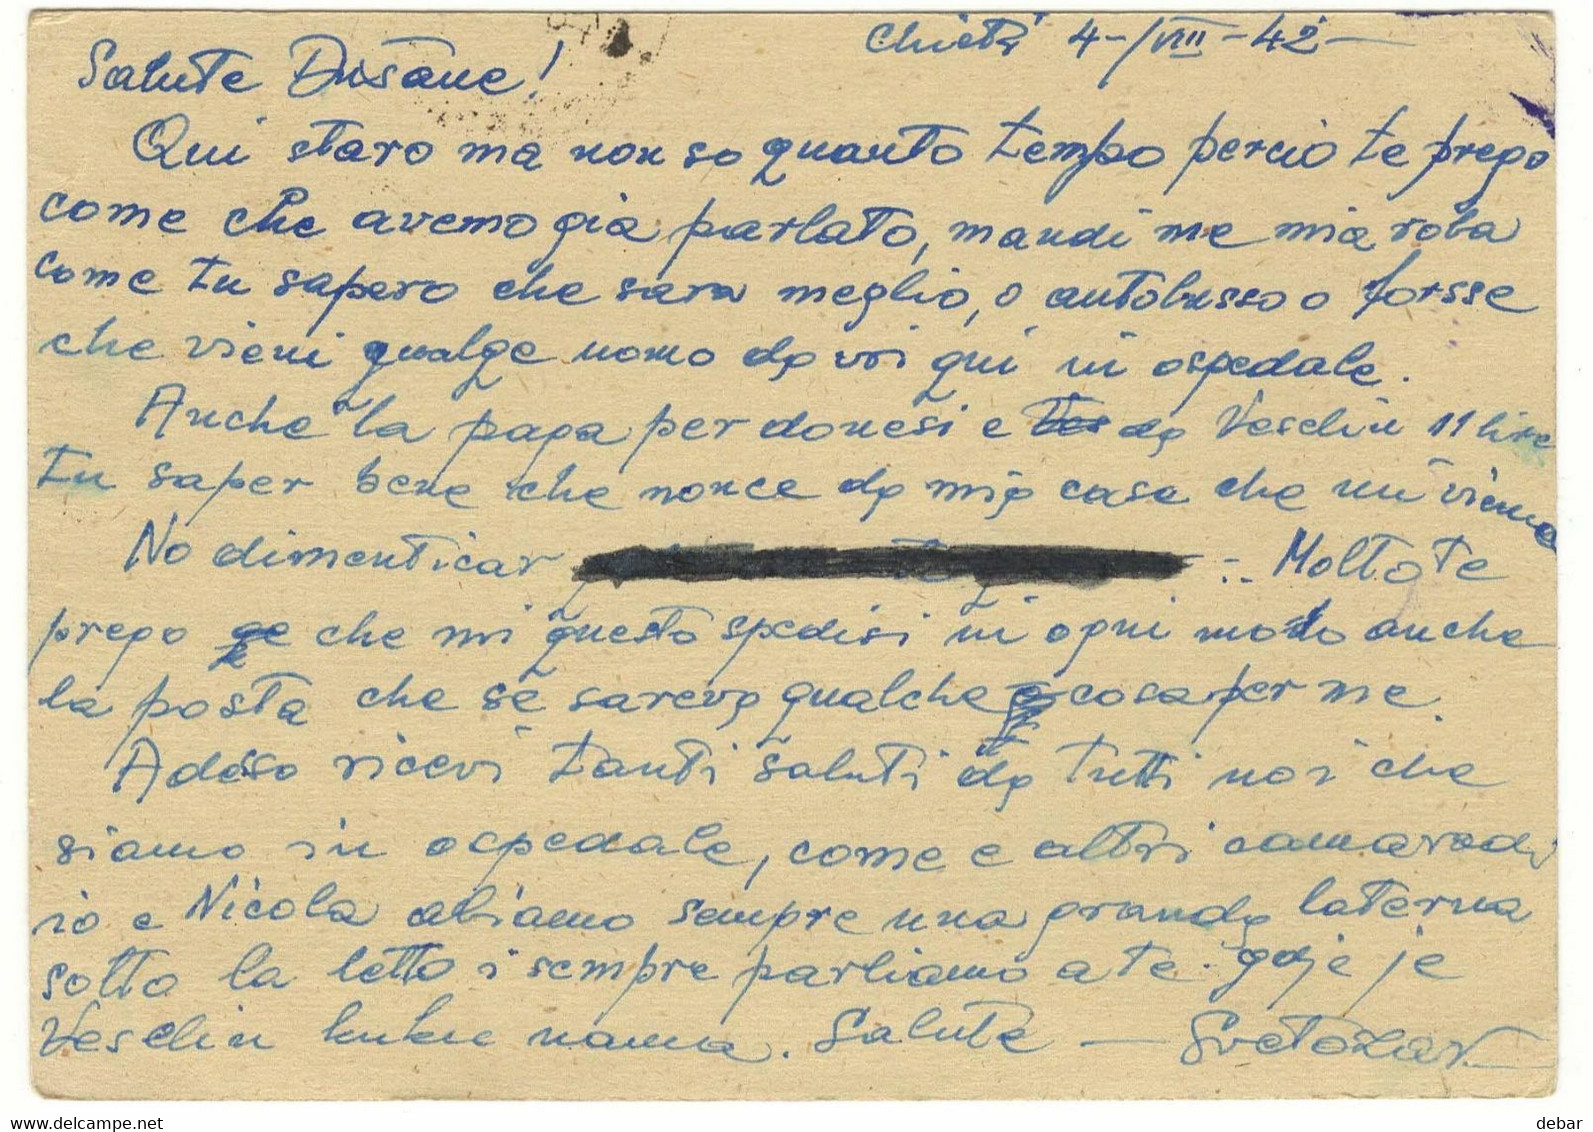 Chieti 4-/VIII-42-
Salute Dušane!
Qui staro ma non so quanto tempo percio te prego
come che avemo già parlato, mandi me mia roba
come tu sapero che sara meglio, o autobusso o forsse
che vieni qualge uomo da voi qui in ospedale.
Anche la paga per donesi e da Veselin 11 lire
tu saper bene che nonce da mia casa che mi viena
No dimenticar .. Molto te
prego che mi questo spedisi in ogni modo anche
la posta che se sareva qualche cosa per me.
Adeso ricevi tanti saluti da tutti noi che
siamo in ospedale, come e altri camaradi
io e Nicola abiamo sempre una granda laterna
sotto la letto i sempre parliamo a te. gdje je
Veselin kuku nama. Salute — Svetozar
www.delcampe.net
debar